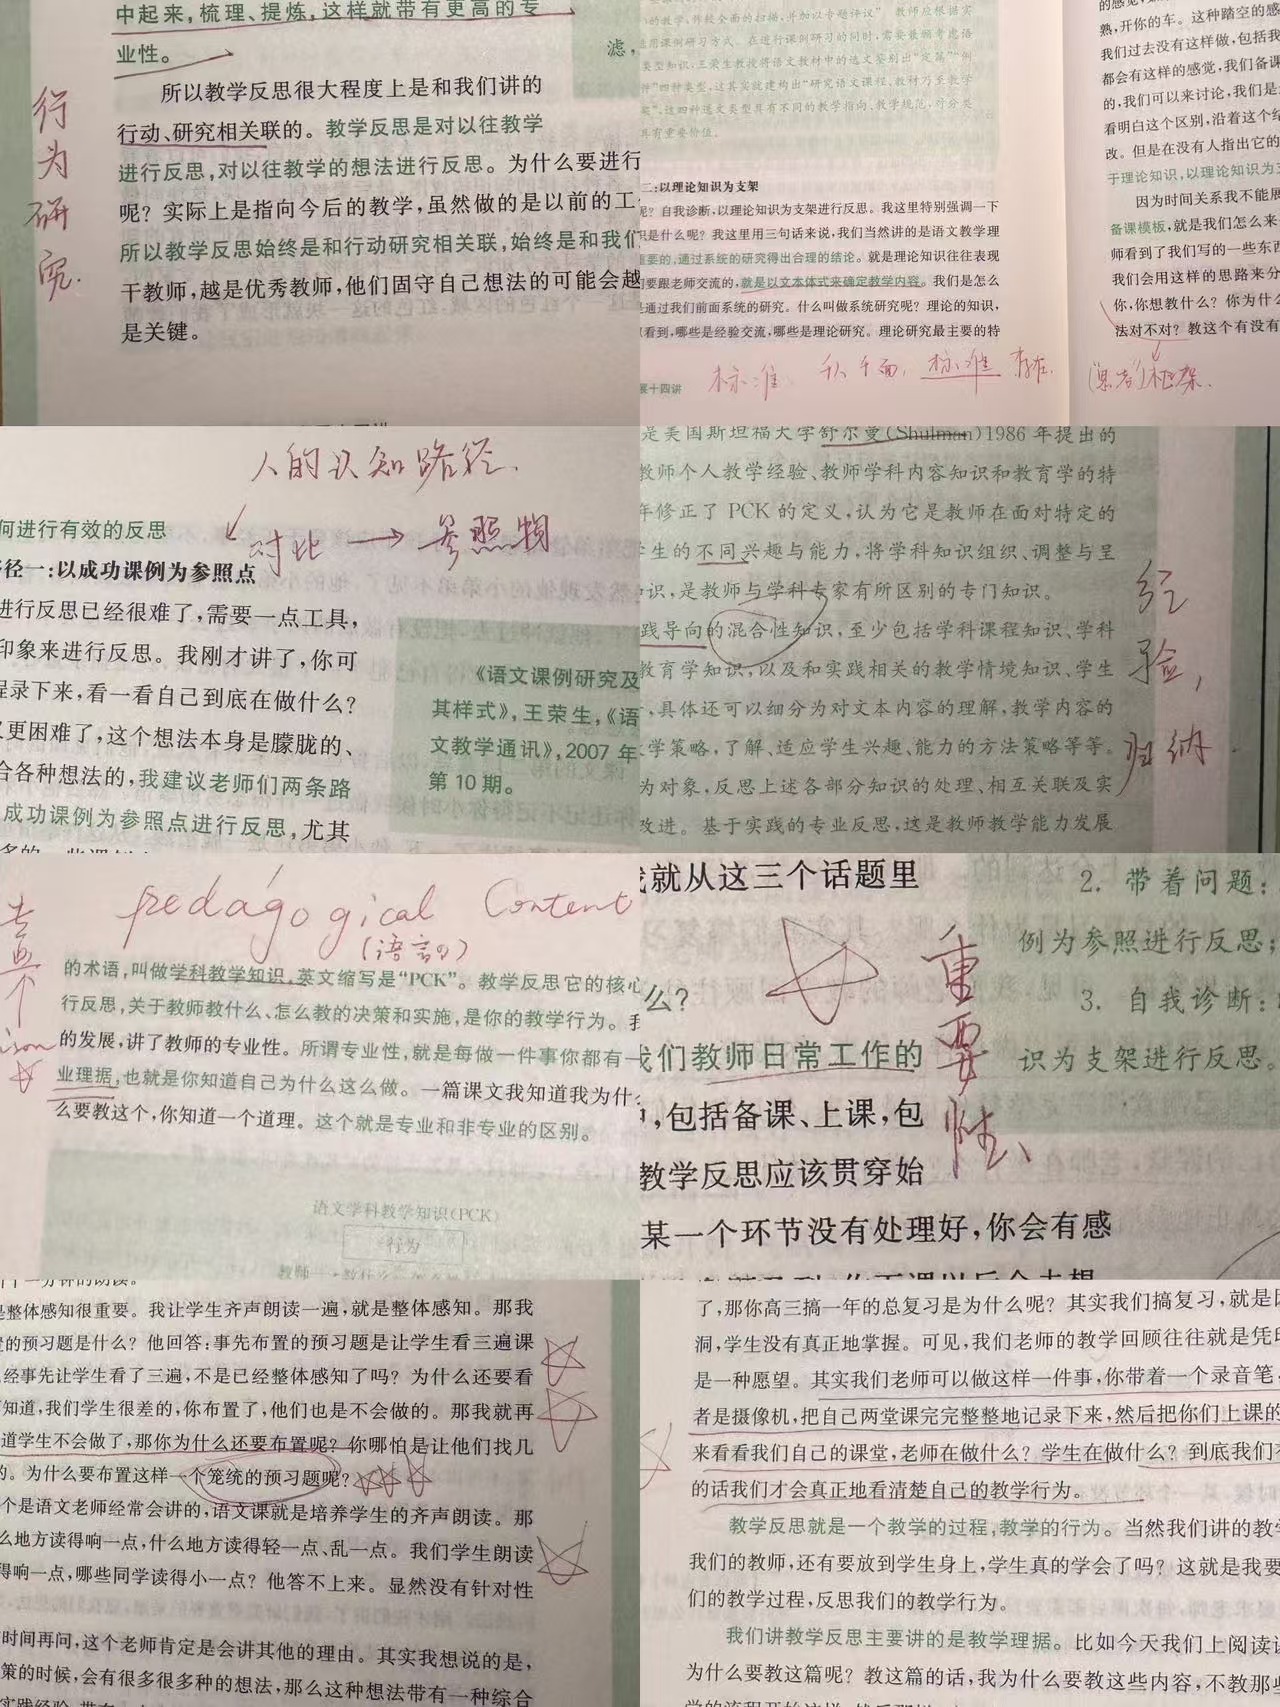 中起来,梳理、提炼,这样就带有更高的专
业性。
滤,
所以教学反思很大程度上是和我们讲的
行动、研究相关联的。教学反思是对以往教学
进行反思,对以往教学的想法进行反思。为什么要进行
呢?实际上是指向今后的教学,虽然做的是以前的工
所以教学反思始终是和行动研究相关联,始终是和我们
干教师,越是优秀教师,他们固守自己想法的可能会越
是关键。
行为研究.
的教学,作较全面的扫描,并加以专题评议”
教师应根据实
用课例研习方式。在进行课例研习的同时,需要兼顾考虑语
类型知识,王荣生教授将语文教材中的选文鉴别出“定篇”“例
件”四种类型,这其实就建构出“研究语文课程、教材乃至教学
案”,这四种选文类型具有不同的教学指向、教学规范,对分类
具有重要价值。
二:以理论知识为支架
呢?自我诊断,以理论知识为支架进行反思。我这里特别强调一下
识是什么呢?我这里用三句话来说,我们当然讲的是语文教学理
重要的,通过系统的研究得出合理的结论。就是理论知识往往表现
要跟老师交流的,就是以文本体式来确定教学内容。我们是怎么
是通过我们前面系统的研究。什么叫做系统研究呢?理论的知识,
看到,哪些是经验交流,哪些是理论研究。理论研究最主要的特
标准、千人千面,标准存在.
展十四讲
熟,开你的车。这种踏空的感
我们过去没有这样做,包括我
都会有这样的感觉,我们备课
的,我们可以来讨论,我们是
看明白这个区别,沿着这个结
改。但是在没有人指出它的
于理论知识,以理论知识为支
因为时间关系我不能展
备课模板,就是我们怎么来
师看到了我们写的一些东西
我们会用这样的思路来分
你,你想教什么?你为什么
法对不对?教这个有没有
框架.
人的认知路径.
对比→参照物
何进行有效的反思
径一:以成功课例为参照点
进行反思已经很难了,需要一点工具,
印象来进行反思。我刚才讲了,你可
程录下来,看一看自己到底在做什么?
更困难了,这个想法本身是朦胧的、
合各种想法的,我建议老师们两条路
成功课例为参照点进行反思,尤其
《语文课例研究及
其样式》,王荣生,《语
文教学通讯》,2007年
第10期。
是美国斯坦福大学舒尔曼(Shulman)1986年提出的
教师个人教学经验、教师学科内容知识和教育学的特
年修正了PCK的定义,认为它是教师在面对特定的
学生的不同兴趣与能力,将学科知识组织、调整与呈
识,是教师与学科专家有所区别的专门知识。
践导向的混合性知识,至少包括学科课程知识、学科
教育学知识,以及和实践相关的教学情境知识、学生
,具体还可以细分为对文本内容的理解,教学内容的
学策略,了解、适应学生兴趣、能力的方法策略等等。
为对象,反思上述各部分知识的处理、相互关联及实
改进。基于实践的专业反思,这是教师教学能力发展
经验,归纳.
pedagogical Content
的术语,叫做学科教学知识,英文缩写是“PCK”。教学反思它的核心
行反思,关于教师教什么、怎么教的决策和实施,是你的教学行为。我
的发展,讲了教师的专业性。所谓专业性,就是每做一件事你都有一
业理据,也就是你知道自己为什么这么做。一篇课文我知道我为什么
么要教这个,你知道一个道理。这个就是专业和非专业的区别。
语文学科教学知识(PCK)
行为
就从这三个话题里
么?
我们教师日常工作的
,包括备课、上课,包
教学反思应该贯穿始
某一个环节没有处理好,你会有感
重要性、
2. 带着问题:
例为参照进行反思;
3. 自我诊断:
识为支架进行反思。
是整体感知很重要。我让学生齐声朗读一遍,就是整体感知。那我
的预习题是什么?他回答:事先布置的预习题是让学生看三遍课
经事先让学生看了三遍,不是已经整体感知了吗?为什么还要看
知道,我们学生很差的,你布置了,他们也是不会做的。那我就再
道学生不会做了,那你为什么还要布置呢?你哪怕是让他们找几
的。为什么要布置这样一个笼统的预习题呢?
个是语文老师经常会讲的,语文课就是培养学生的齐声朗读。那
么地方读得响一点,什么地方读得轻一点、乱一点。我们学生朗读
得响一点,哪些同学读得小一点?他答不上来。显然没有针对性
时间再问,这个老师肯定是会讲其他的理由。其实我想说的是,
策的时候,会有很多很多种的想法,那么这种想法带有一种综合
了,那你高三搞一年的总复习是为什么呢?其实我们搞复习,就是因
洞,学生没有真正地掌握。可见,我们老师的教学回顾往往就是凭印
是一种愿望。其实我们老师可以做这样一件事,你带着一个录音笔,
者是摄像机,把自己两堂课完完整整地记录下来,然后把你们上课的
来看看我们自己的课堂,老师在做什么?学生在做什么?到底我们有
的话我们才会真正地看清楚自己的教学行为。
教学反思就是一个教学的过程,教学的行为。当然我们讲的教学
我们的教师,还有要放到学生身上,学生真的学会了吗?这就是我要
们的教学过程,反思我们的教学行为。
我们讲教学反思主要讲的是教学理据。比如今天我们上阅读课
为什么要教这篇呢?教这篇的话,我为什么要教这些内容,不教那些